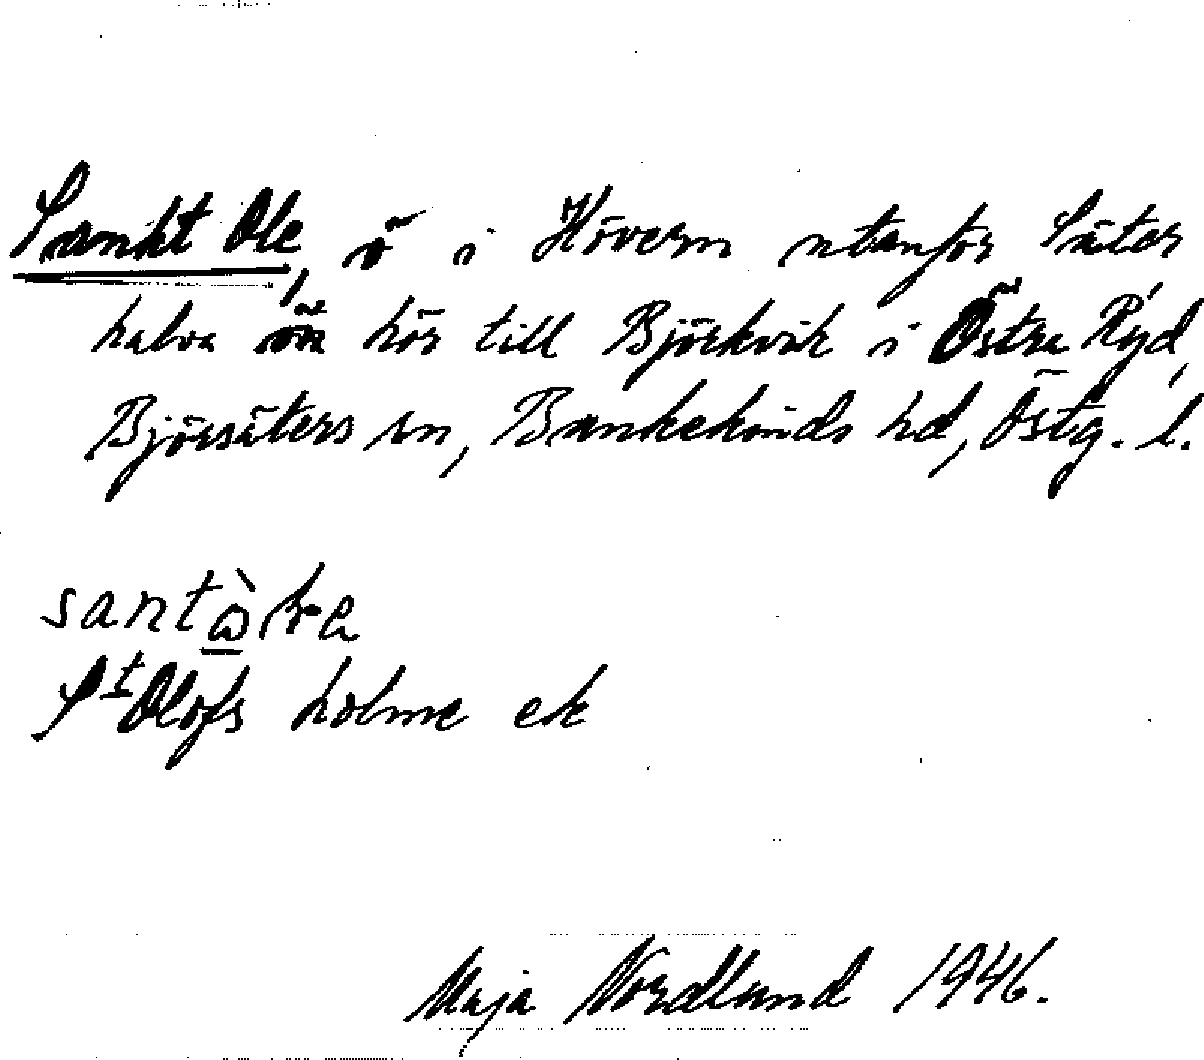 Sankt Ole, ö i Hövern utanför Säter
halva ön hör till Björkvik i Östra Ryd,
Björsäters sn, Bankekinds hd, Östg. l.
St Olofs holme ek
Maja Nordlund 1946.